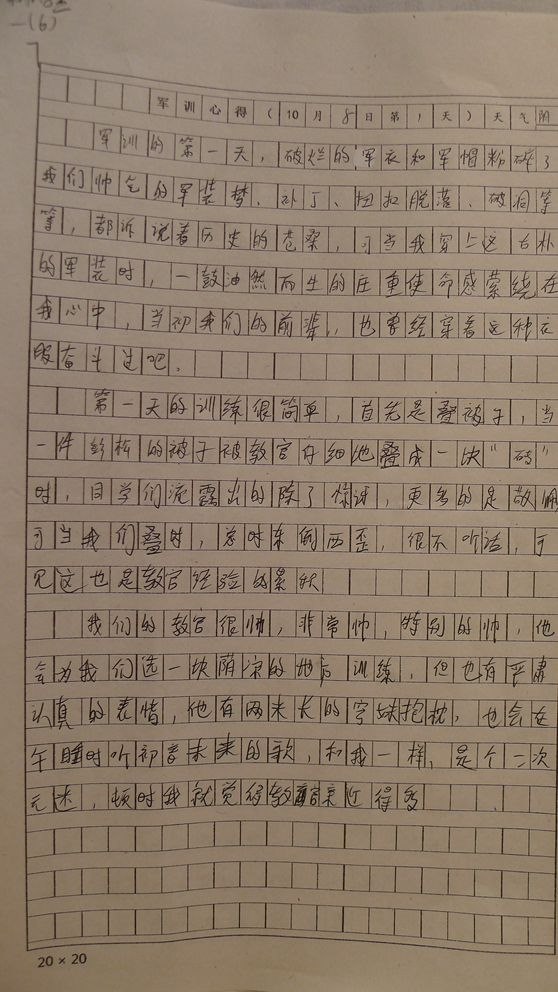 一(6)
军训心得(10月8日第1天)天气阴
军训的第一天,破烂的军衣和军帽粉碎了
我们帅气的军装梦,补丁、扭扣脱落、破洞等
等,都诉说着历史的苍桑,可当我穿上这古朴
的军装时,一鼓油然而生的庄重使命感萦绕在
我心中,当初我们的前辈,也曾经穿着这种衣
服奋斗过吧.
第一天的训练很简单,首先是叠被子,当
一件的被子被教官仔细地叠成一块“砖”
时,同学们流露出的除了惊讶,更多的是敬佩
可当我们叠时,总时东倒西歪,很不听话,可
见这也是教官经验的累积
我们的教官很帅,非常帅,特别的帅,他
会为我们选一块荫凉的地方训练,但也有严肃
认真的表情,他有两米长的抱枕,也会在
午睡时听初音未来的歌,和我一样,是个二次
元迷,顿时我就觉得教官亲近得多
20×20